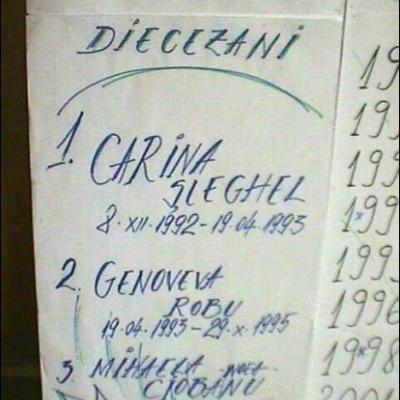 DIECEZANI
1. CARINA
ȘLEGHEL
8.XII.1992-19.04.1993
2. GENOVEVA
ROBU
19.04.1993-29.X.1995
3. MIHAELA
CIOBANU
199
1996
1998